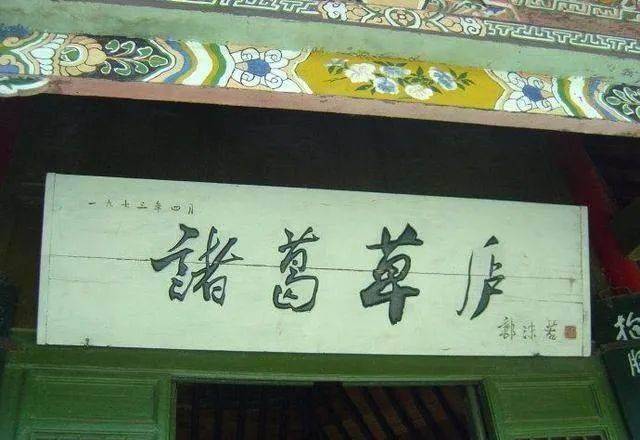 一九七三年四月
諸葛草庐
郭沫若
抱
膝